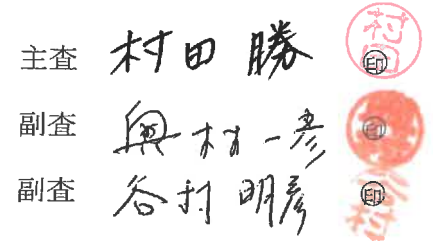 主査 村田 勝 ㊞ 村田
副査 奥村一彦 ㊞
副査 谷村明彦 ㊞ 谷村